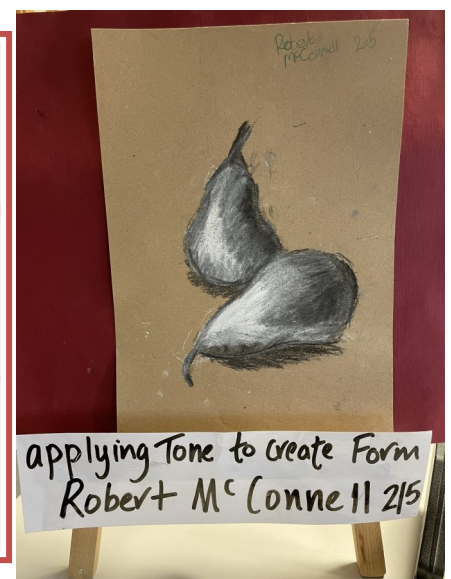 Robert 2r5
McConnell
applying Tone to create Form
Robert Mc Connell 2r5